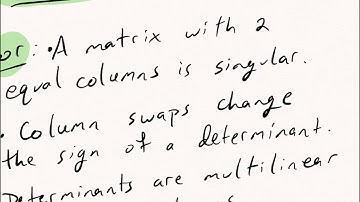 or: • A matrix with 2
equal columns is singular.
• Column swaps change
the sign of a determinant.
Determinants are multilinear